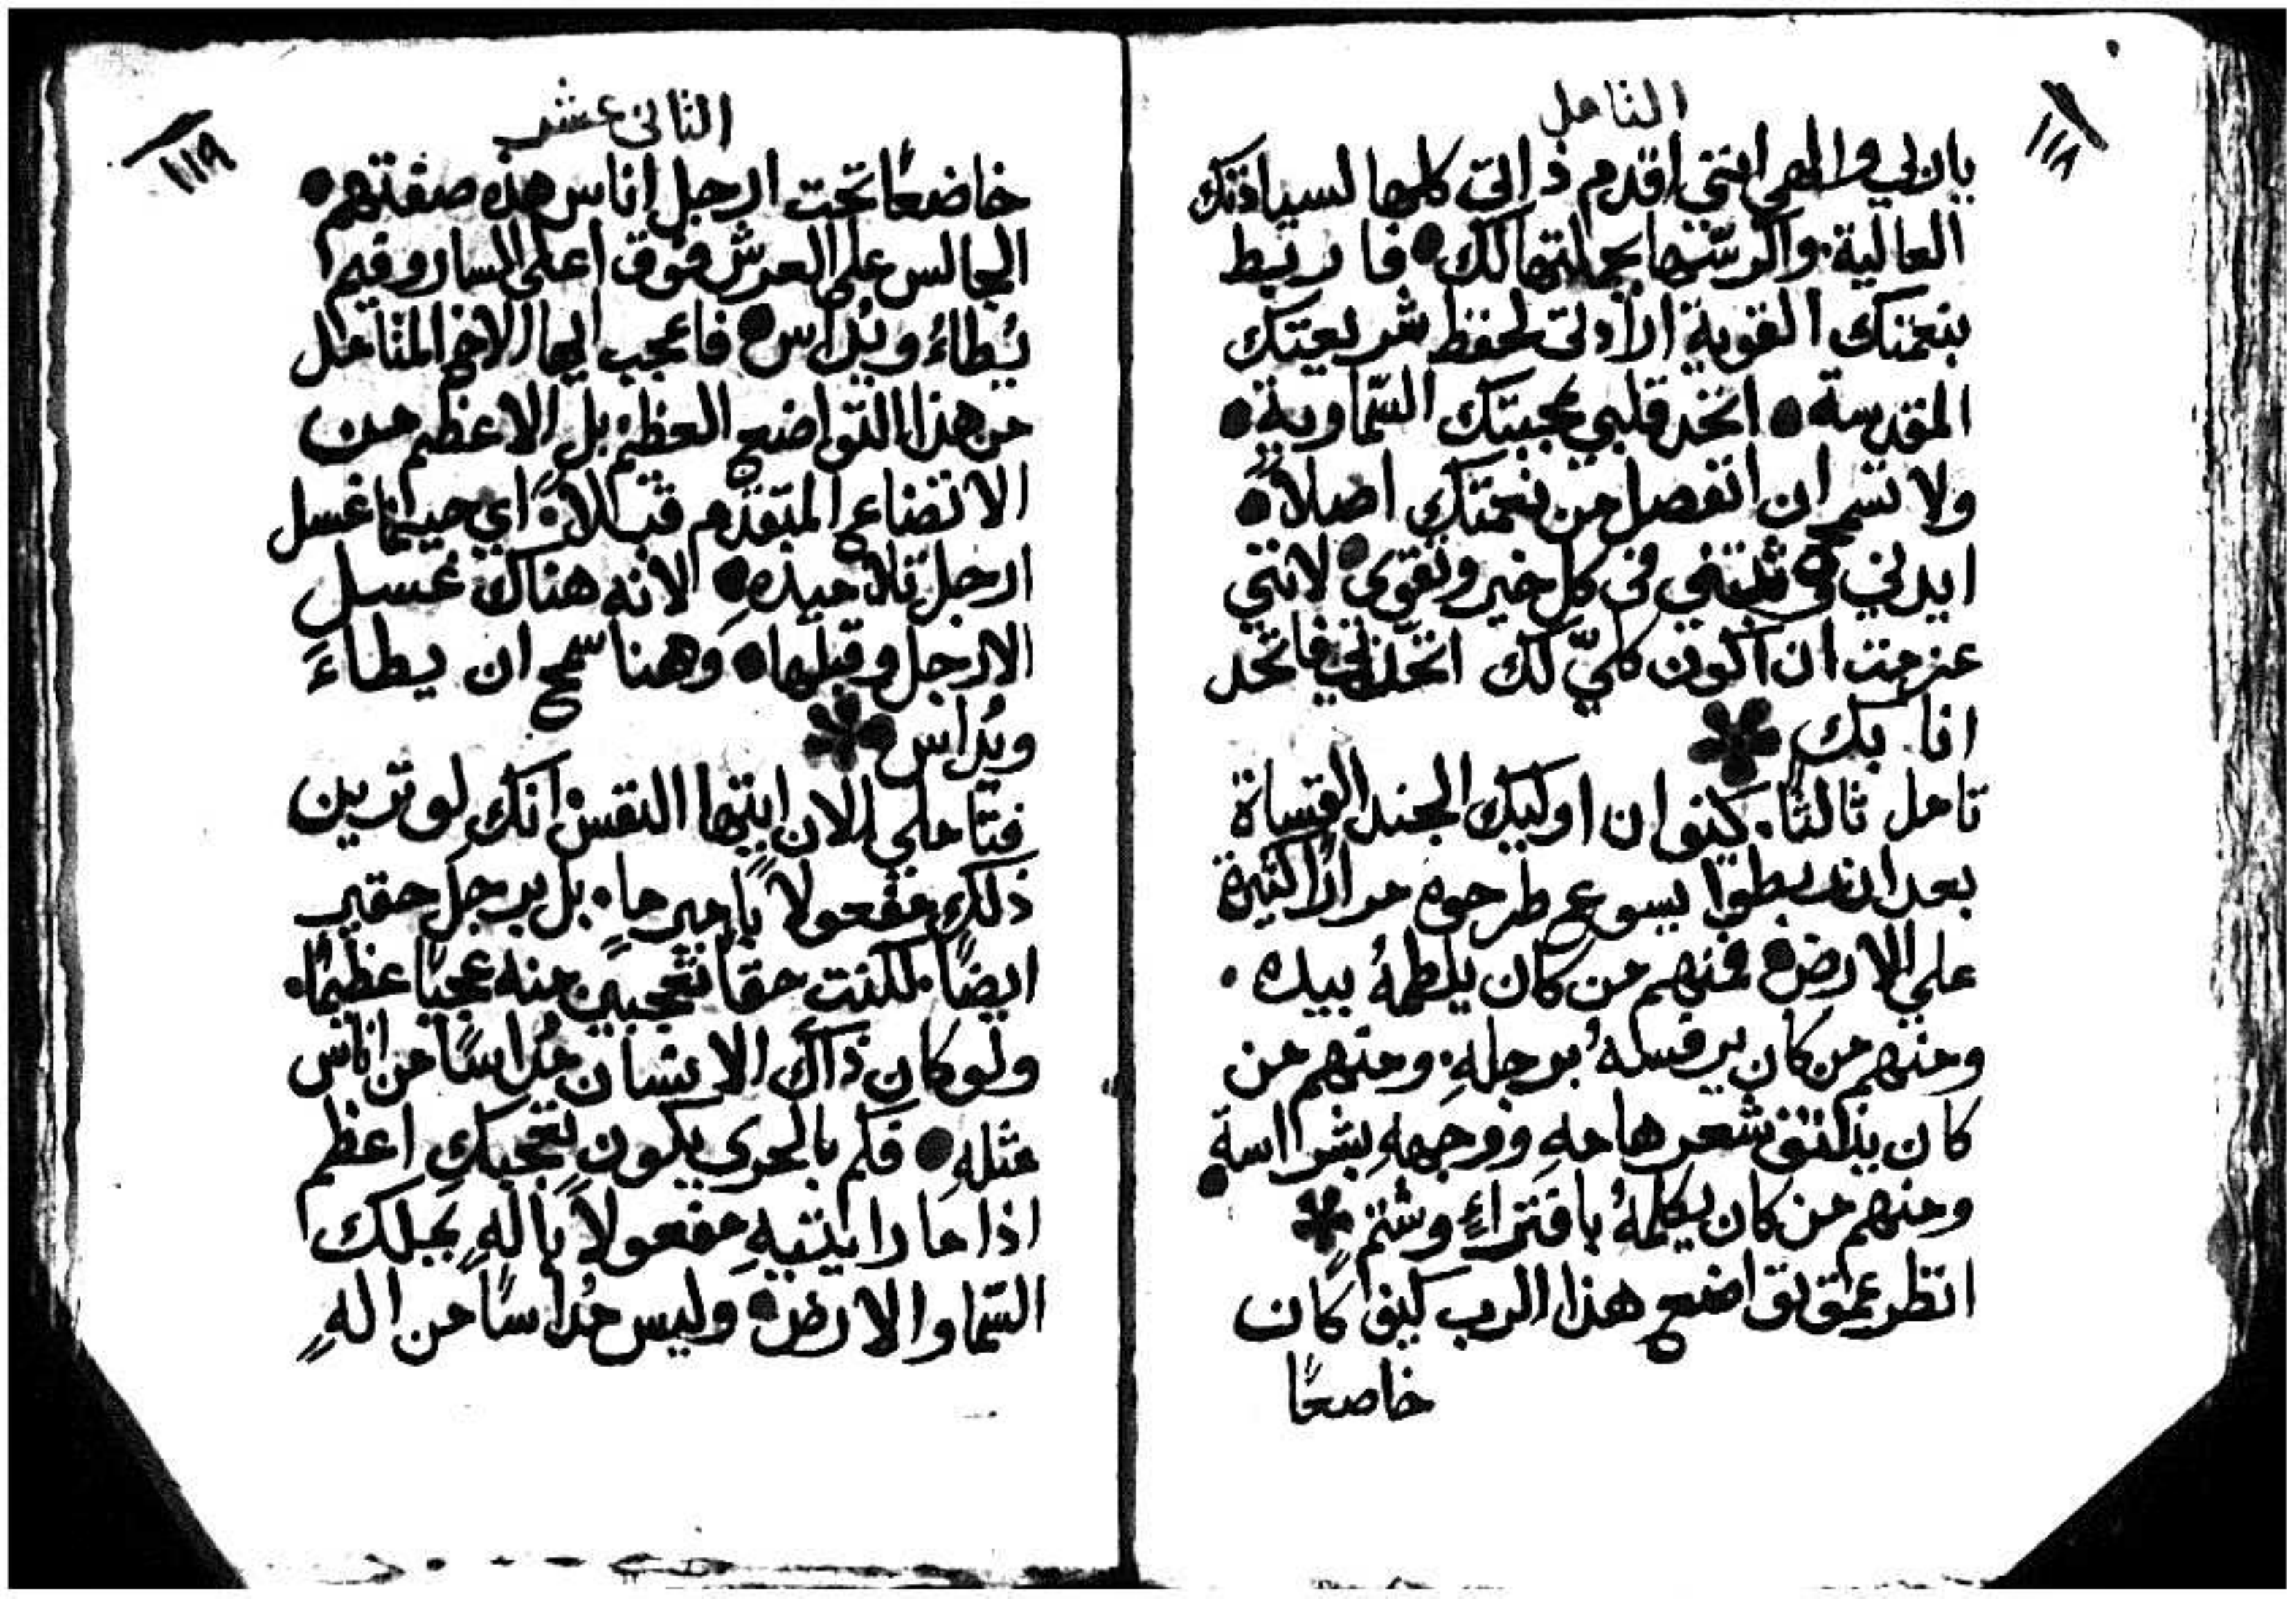 ١١٨
التامل
يا ربي والهي انني اقدم ذاتي كلها لسيادتك
العالية. واكرسها بجملتها لك● فاربط
بنعمتك القوية ارادتي لحفظ شريعتك
المقدسة● اتخد قلبي بمحبتك السماوية●
ولا تسمح ان انفصل من نعمتك اصلاً●
ايدني وثبتني في كل خير وتقوى● لانني
عزمت ان اكون كليّ لك اتخدني فاتخد
انا بك
تامل ثالثًا. كيف ان اوليك الجند القساة
بعد ان ربطوا يسوع طرحوه مرارًا كثيرة
علي الارض● فمنهم من كان يلطمهُ بيده.
ومنهم من كان يرفسهُ برجلهِ. ومنهم من
كان ينتف شعر هامهِ ووجههِ بشراسةٍ●
ومنهم من كان يكلمهُ بافتراءٍ وشتمٍ
انظر عمق تواضع هذا الرب كيف كان
خاضعًا
١١٩
الثاني عشر
خاضعًا تحت ارجل اناس هذه صفتهم●
الجالس على العرش فوق اعلى الساروفيم
يُطاءُ ويُداس● فاعجب ايها الاخ المتامل
من هذا التواضع العظيم. بل الاعظم من
الاتضاع المتقدم قبلاً. اي حينما غسل
ارجل تلاميذهِ● لانه هناك غسل
الارجل وقبلها● وهنا سمح ان يطاءَ
ويُداس
فتاملي الان ايتها النفس انك لو ترين
ذلك مفعولاً باميرٍ ما. بل برجل حقير
ايضًا. لكنت حقًا تتعجبين منه عجبًا عظيمًا.
ولو كان ذاك الانسان مُداسًا من اناس
مثلهِ● فكم بالحري يكون تعجبكِ اعظم
اذا ما رايتيهِ مفعولاً بالهٍ يملك
السما والارض● وليس مُداسًا من الهٍ